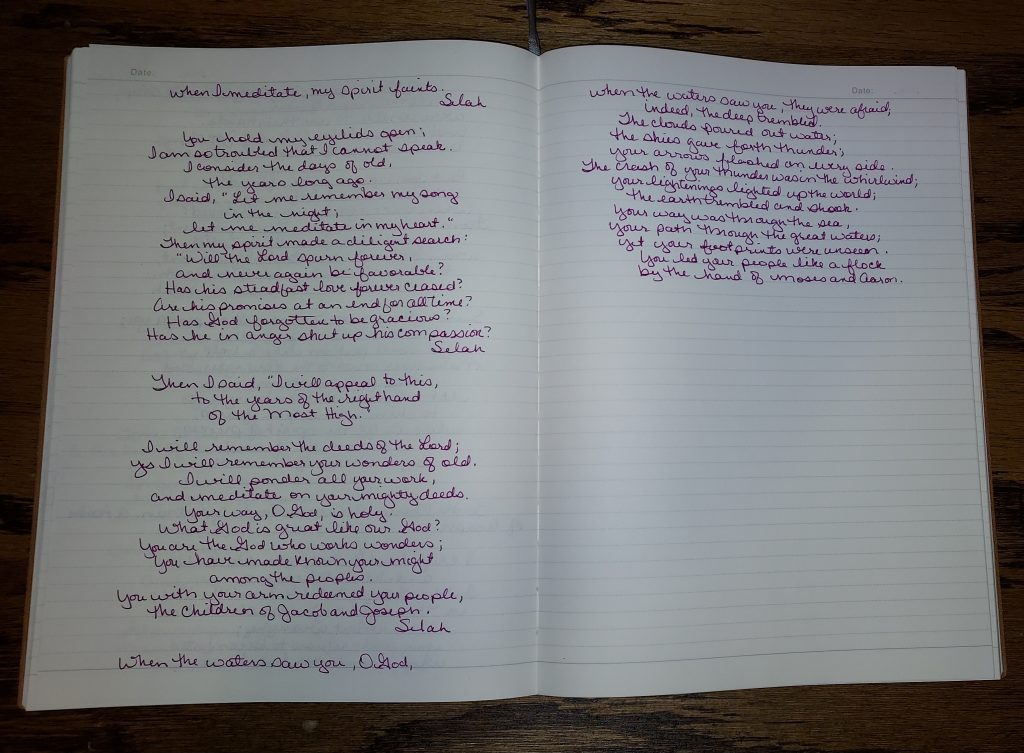 Date:
When I meditate, my spirit faints.
Selah
You hold my eyelids open;
I am so troubled that I cannot speak.
I consider the days of old,
the years long ago.
I said, "Let me remember my song
in the night;
let me meditate in my heart."
Then my spirit made a diligent search:
"Will the Lord spurn forever,
and never again be favorable?
Has his steadfast love forever ceased?
Are his promises at an end for all time?
Has God forgotten to be gracious?
Has he in anger shut up his compassion?
Selah
Then I said, "I will appeal to this,
to the years of the right hand
of the Most High."
I will remember the deeds of the Lord;
yes I will remember your wonders of old.
I will ponder all your work,
and meditate on your mighty deeds.
Your way, O God, is holy.
What God is great like our God?
You are the God who works wonders;
You have made known your might
among the peoples.
You with your arm redeemed your people,
the Children of Jacob and Joseph.
Selah
When the waters saw you, O God,
Date:
when the waters saw you, they were afraid;
indeed, the deep trembled.
The clouds poured out water;
the skies gave forth thunder;
your arrows flashed on every side.
The crash of your thunder was in the whirlwind;
your lightenings lighted up the world;
the earth trembled and shook.
Your way was through the sea,
your path through the great waters;
yet your footprints were unseen.
You led your people like a flock
by the hand of Moses and Aaron.